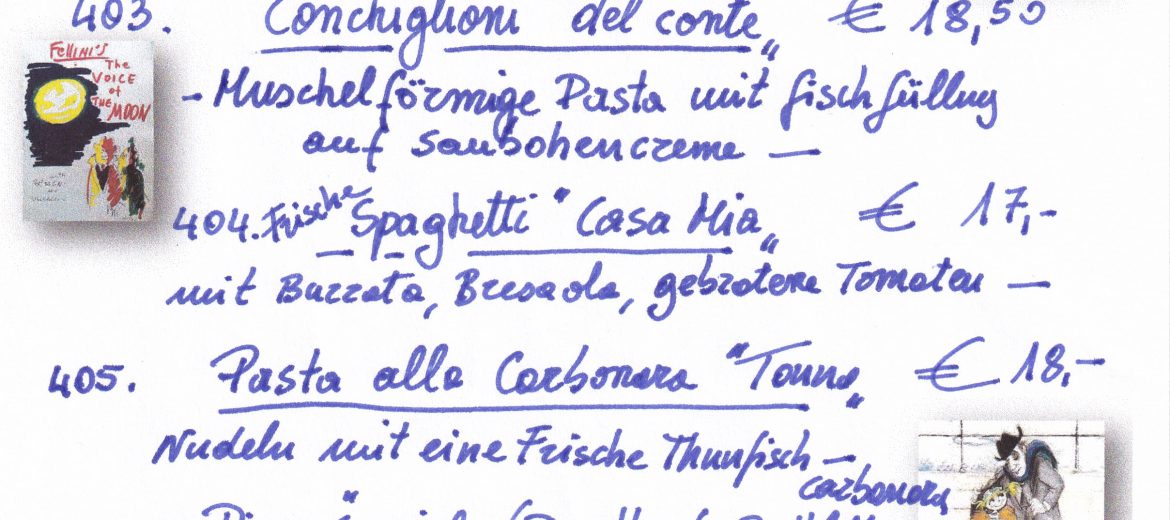 403. Conchiglioni del conte" € 18,50
Fellini's
The
VOICE
of
THE
MOON
- Muschelförmige Pasta mit fischfüllung
auf saubohencreme —
404. Frische Spaghetti "Casa Mia" € 17,-
mit Burrata, Bresaola, gebratene Tomaten —
405. Pasta alla Carbonara "Tonno" € 18,-
Nudeln mit eine Frische Thunfisch —
carbonara